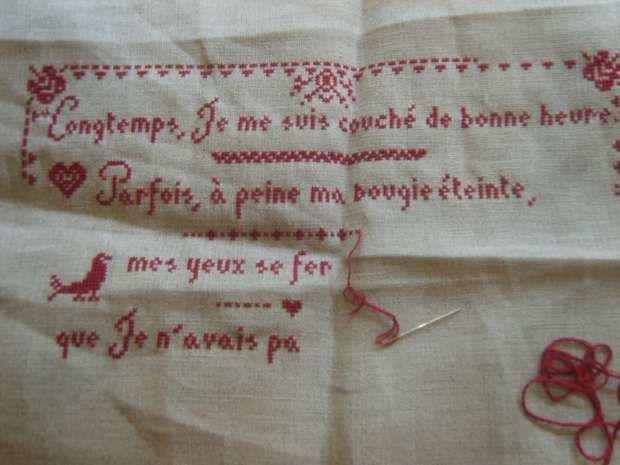 Longtemps, Je me suis couché de bonne heure.
Parfois, à peine ma bougie éteinte,
mes yeux se fer
que Je n'avais pa